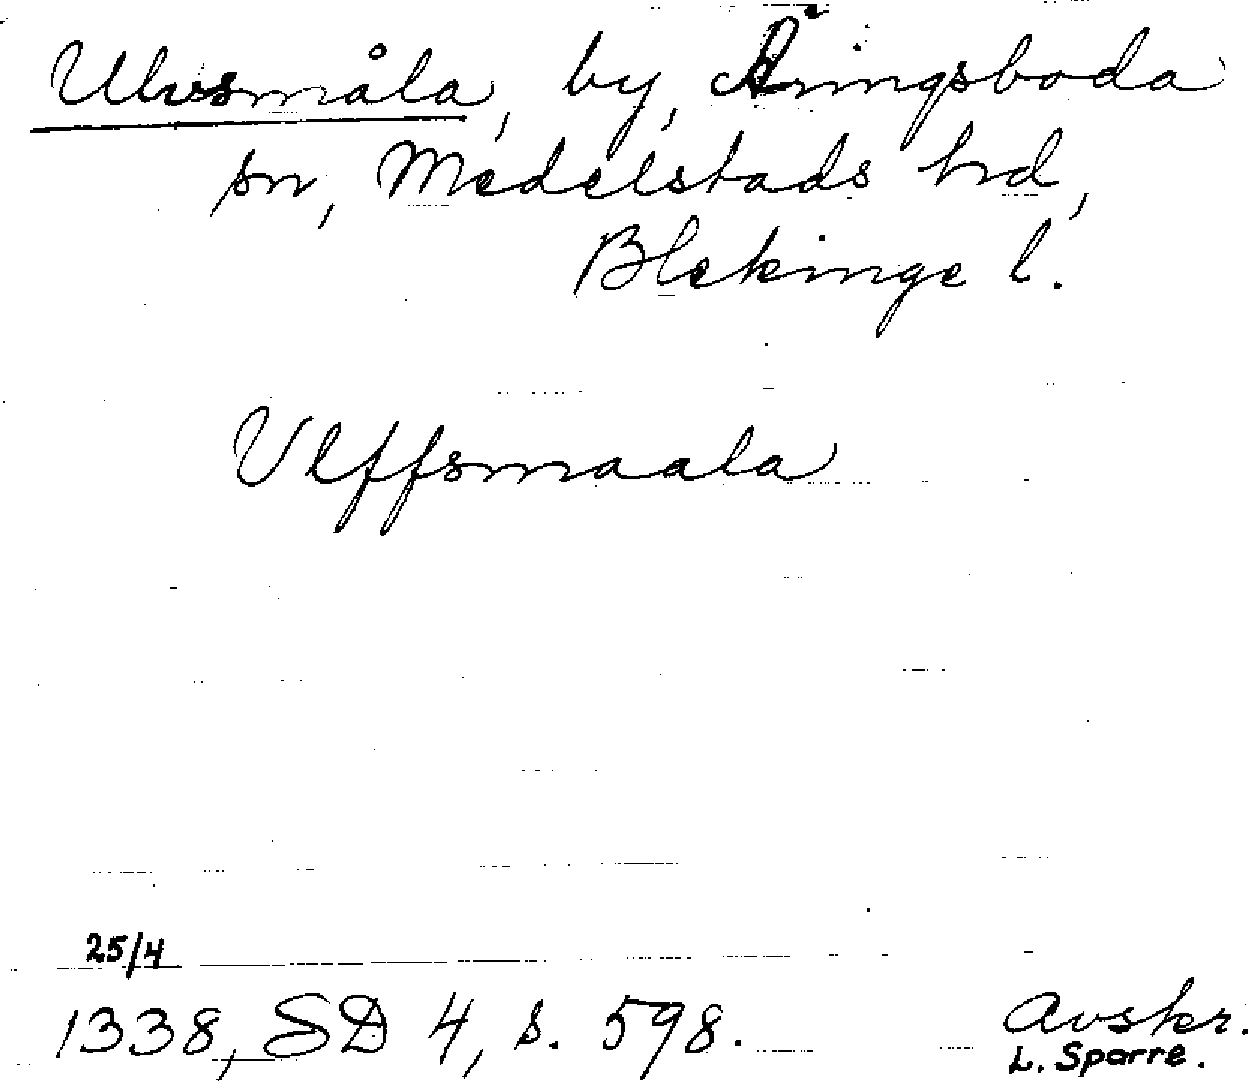 Ulvsmåla, by, Åringsboda
sn, Medelstads hrd,
Blekinge l.
Vlffsmaala
25/4
1338, SD 4, s. 598.
Avskr.
L. Sparre.